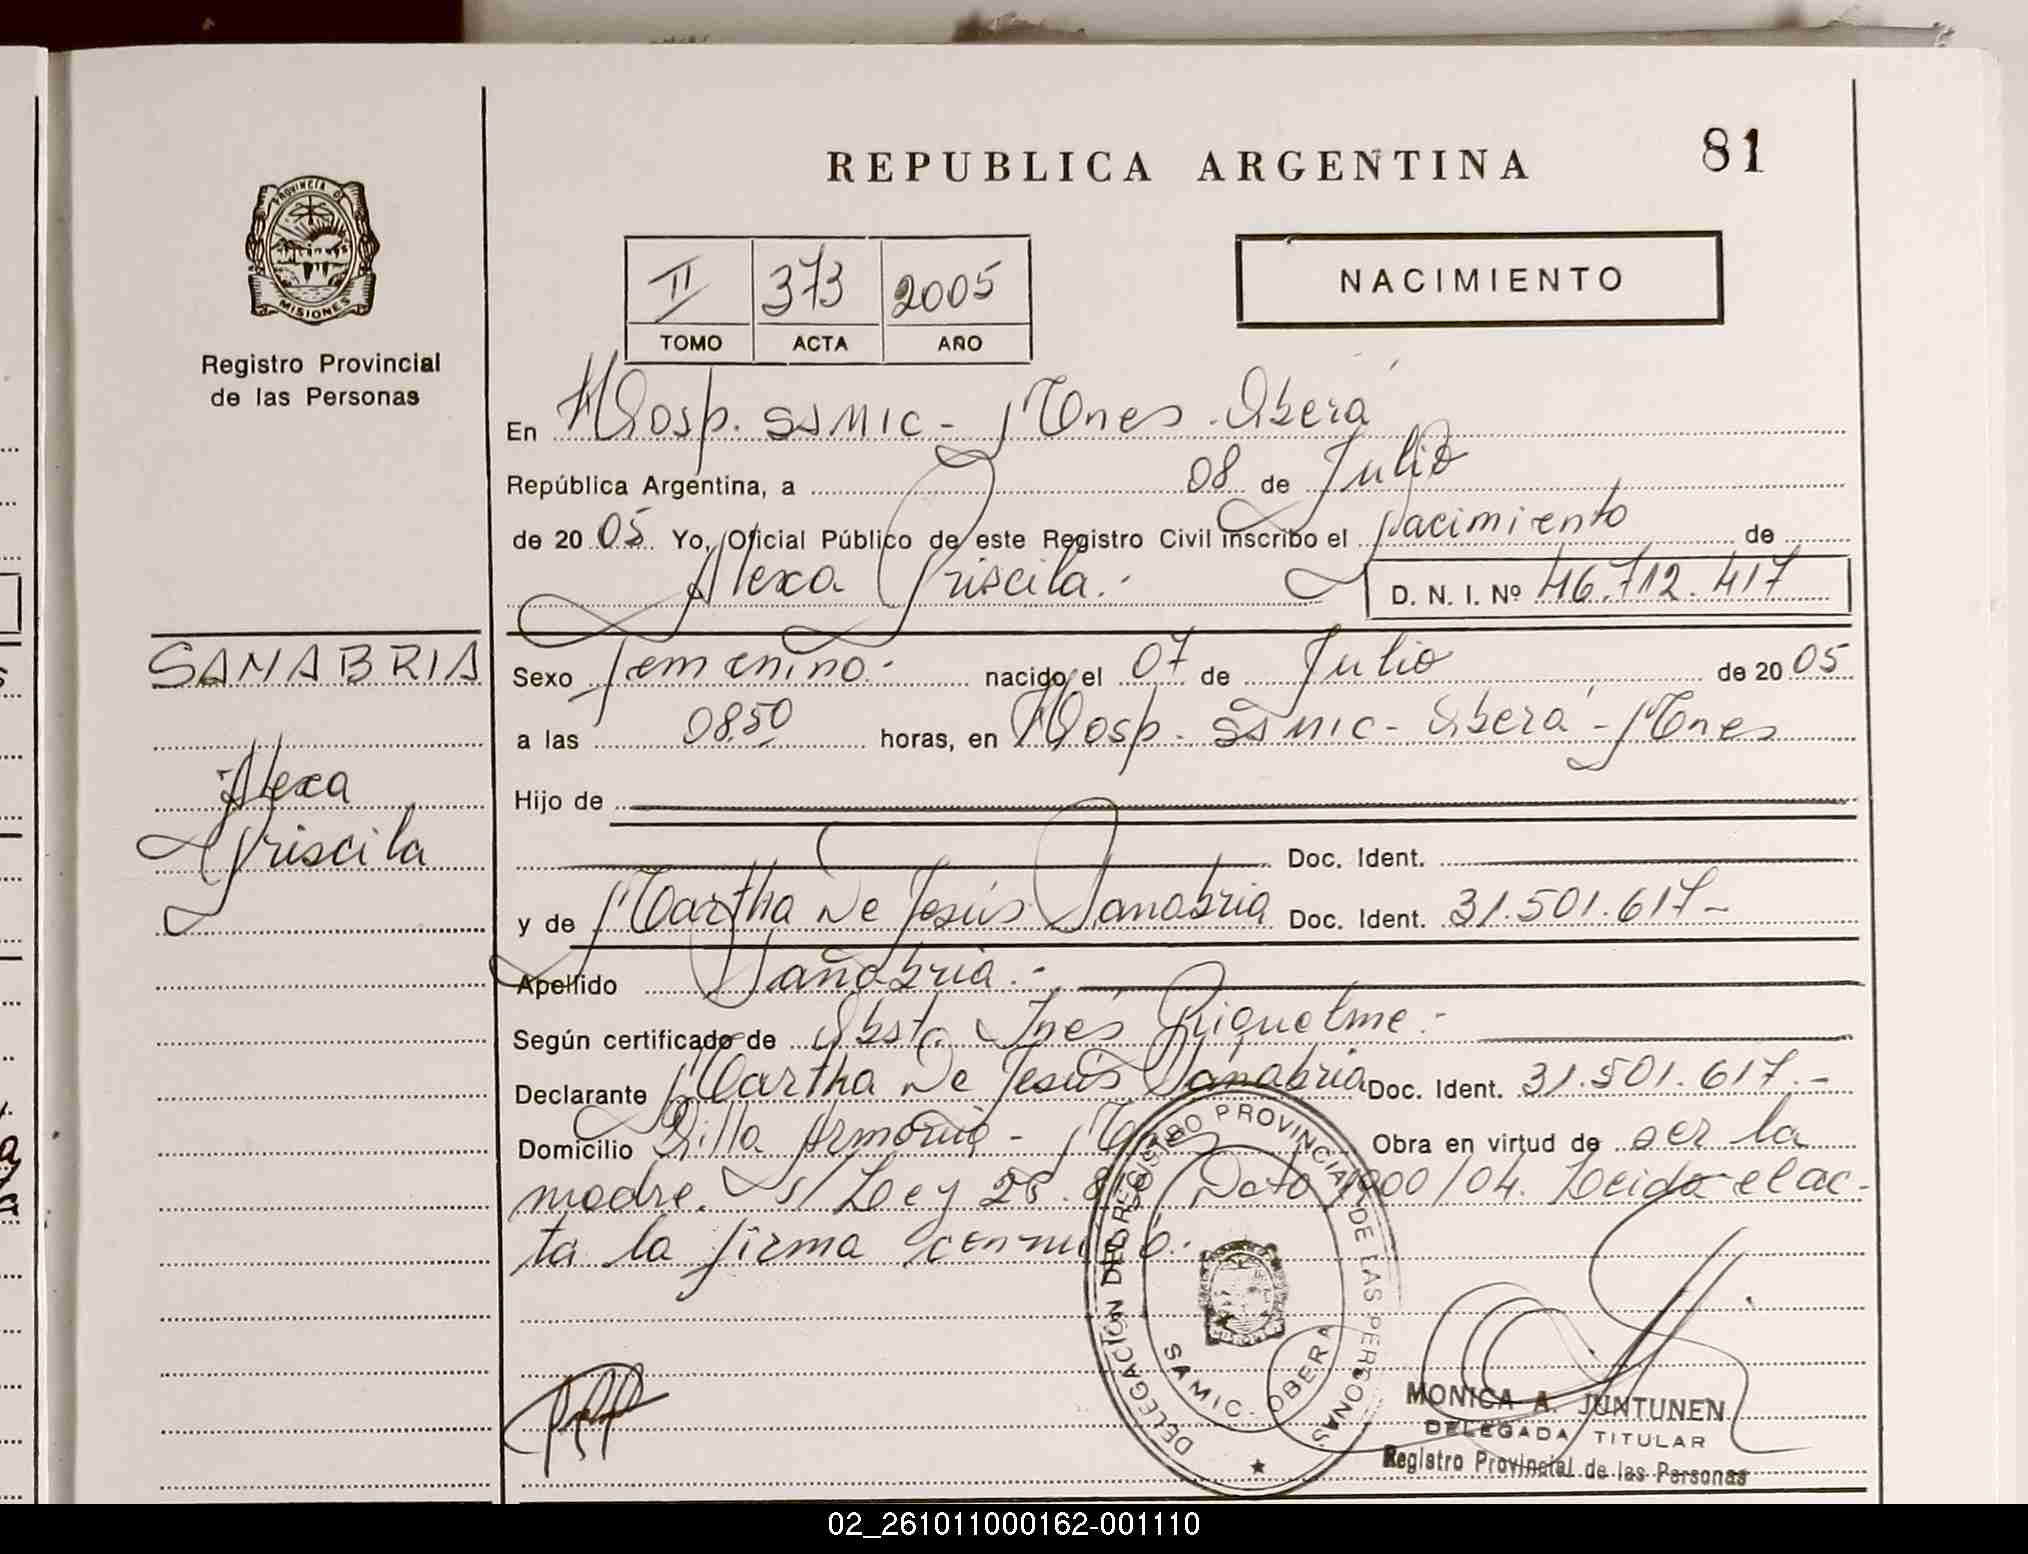 81
REPUBLICA ARGENTINA
PROVINCIA DE
MISIONES
Registro Provincial
de las Personas
II 373 2005
TOMO ACTA AÑO
NACIMIENTO
En Hosp. SAMIC - Mnes. Oberá
República Argentina, a 08 de Julio
de 2005 Yo, Oficial Público de este Registro Civil inscribo el nacimiento de
Alexa Priscila.-
D. N. I. Nº 46.712.417
SANABRIA
Alexa
Priscila
Sexo femenino.- nacido el 07 de Julio de 2005
a las 08.50 horas, en Hosp. SAMIC - Oberá - Mnes
Hijo de
Doc. Ident.
y de Martha De Jesús Sanabria Doc. Ident. 31.501.617-
Apellido Sanabria.-
Según certificado de Obst. Inés Riquelme.-
Declarante Martha De Jesús Sanabria Doc. Ident. 31.501.617.-
Domicilio Villa Armonía - Mnes Obra en virtud de ser la
madre. s/ Ley Dcto 1900/04. Leida el ac-
ta la firma conmigo.-
DELEGACIÓN DEL REGISTRO PROVINCIAL DE LAS PERSONAS
SAMIC - OBERA
MONICA A. JUNTUNEN
DELEGADA TITULAR
Registro Provincial de las Personas
02_261011000162-001110